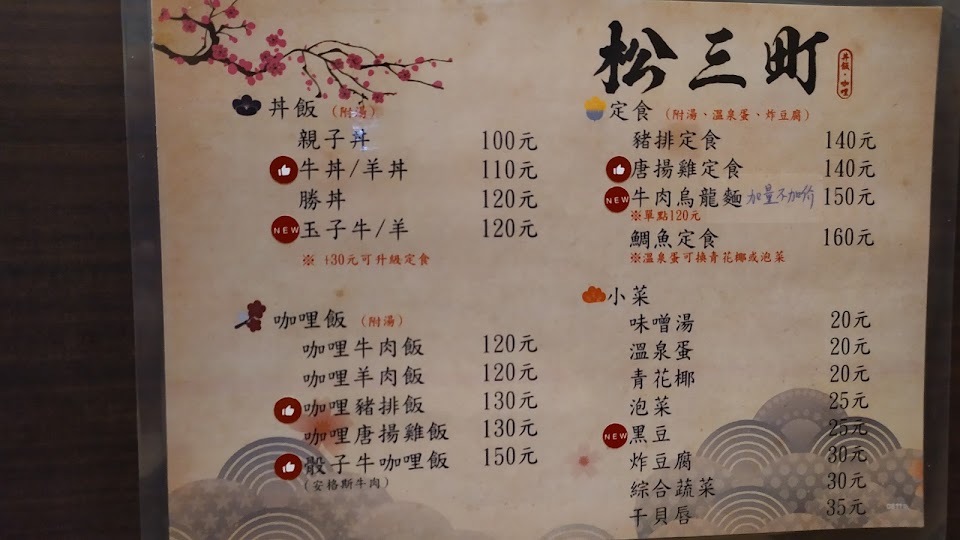 松三町
丼飯・咖哩
丼飯 (附湯)
親子丼 100元
牛丼/羊丼 110元
勝丼 120元
NEW 玉子牛/羊 120元
※ +30元可升級定食
咖哩飯 (附湯)
咖哩牛肉飯 120元
咖哩羊肉飯 120元
咖哩豬排飯 130元
咖哩唐揚雞飯 130元
骰子牛咖哩飯 150元
(安格斯牛肉)
定食 (附湯、溫泉蛋、炸豆腐)
豬排定食 140元
唐揚雞定食 140元
NEW 牛肉烏龍麵 加量不加价 150元
※單點120元
鯛魚定食 160元
※溫泉蛋可換青花椰或泡菜
小菜
味噌湯 20元
溫泉蛋 20元
青花椰 20元
泡菜 25元
NEW 黑豆 25元
炸豆腐 30元
綜合蔬菜 30元
干貝唇 35元